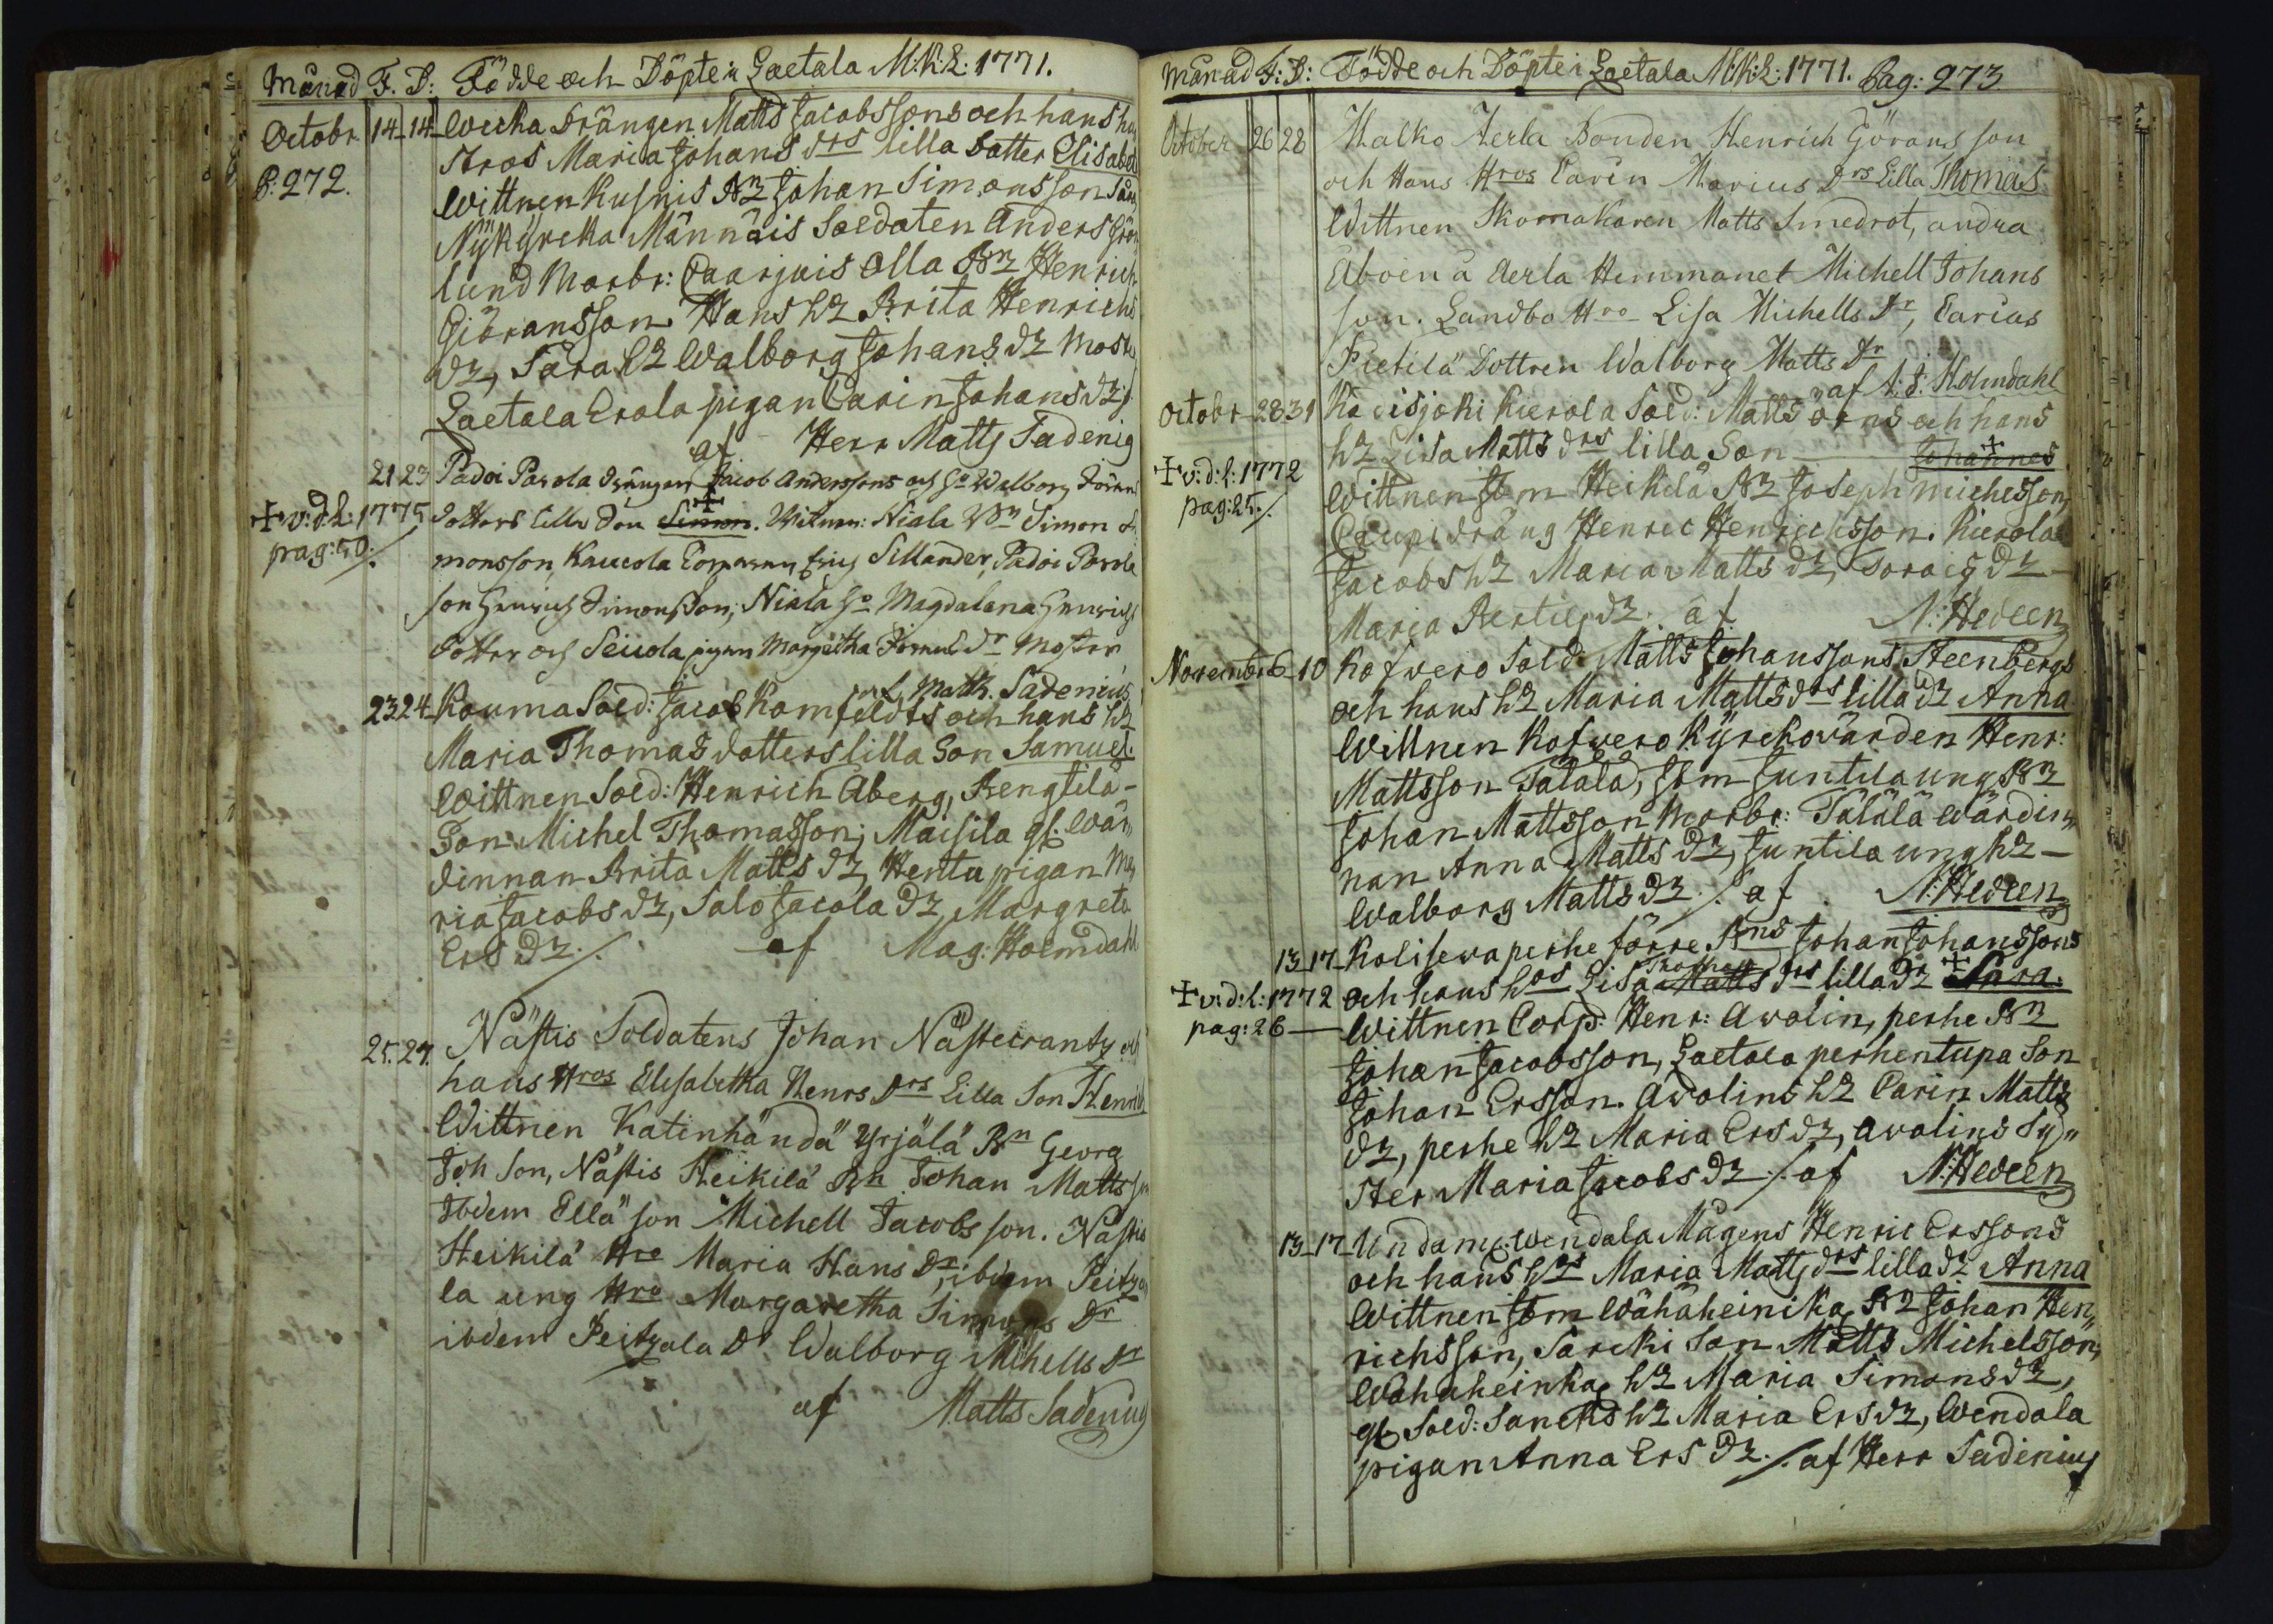 Månad F. D: Födde och Döpte i Laetala M:K:L: 1771.
Octobr 14 14 Wecka Drängen Matts Jacobssons och hans hu
P: 272. stros Maria Johans drs lilla Datter Elisabet
Wittnen Kusnis Bn Johan Simonsson
Nÿkÿrcka Männäis Soldaten Anders Grön
lund Morbr: Caarjuis Olla Bn Henrich
Giöransson. Hans h2 Brita Henrichs
d2, Sara h2 Walborg Johans d2 Most
Laetala Erola pigan Carin Johans d2
af Herr Matts Sadenig
21 23 Padoi Parola drängen Jacob Anderssons och h Walborg Görans
+ v: d: l: 1775 dotters lilla Son Simon. Witnen: Niala Bn Simon Si
pag: 50 ./. monsson, Kaucola Eric Sillander, Padoi Parola
son Henrich Simonsson, Niala h Magdalena Henrichs
Dotter och Seiicola pigan Margetha Dr Moster
af Matth. Sadenius
23 24 Kouma Sold: Jacob Komfeldts och hans h2
Maria Thomas dotters lilla Son Samuel.
Wittnen Sold: Henrich Aberg, Rengtilä-
Son Michel Thomasson; Maisila gl: Wär„
dinnan Brita Matts d2, Hentu pigan Ma„
ria Jacobs d2, Salo Jacola d2 Margreta
Ers d2 ./. af Mag: Holmdahl
25. 27. Nästis Soldatens Johan Nästecrantz och
hans Hros Elisabetha Henrs Drs Lilla Son Henrich
Wittnen Katinhändä Yrjälä Bn Georg
Joh Son, Nästis Heikilä Bn Johan Matts son
Ibdem Ellä son Michell Jacobs son. Nästis
Heikilä Hro Maria Hans Dr, ibdem Peitza
la ung Hro Margaretha Simons Dr
ibdem Peitzala Dr Walborg Mihells Dr
af Matts Sadenius
Månad F: D: Födde och Döpte i Laetala M:K:L: 1771. Pag: 273
October 26 28 Malko Aerla Bonden Henrich Görans son
och Hans Hros Carin Marius Drs Lilla Thomas
Wittnen Skomakaren Matts Smedrot, andra
Åboen å Aerla Hemmanet Michell Johans
son. Landbo Hro Lisa Michells Dr, Carius
Pietilä Dottren Walborg Matts Dr
af A: J: Holmdahl
Octobr 28 31 Kocisjoki Kierola Sold: Matts örns och hans
h2 Lisa Matts drs lilla Son Johannes
+ v: d: l: 1772 Wittnen Jbm Heikilä Bn Joseph Michelsson,
pag: 25 ./. Caupi dräng Henric Henrichsson. Kierola
Jacobs h2 Maria Matts d2, Soraig d2
Maria Bertils d2. af N: Hedeen
November 6 10 Kofwero Sold: Matts Johanssons Steenbergs
och hans h2 Maria Matts drs lilla d2 Anna
Wittnen Kofwero Kÿrckovärden Henr:
Mattsson Tälälä, Jbm Juntila ung Bn
Johan Mattsson Morbr: Tälälä wärdin„
nan Anna Matts d2, Juntila ung h2 —
Walborg Matts d2 ./. af N: Hedeen
13 17 Kalisewa perhe förre Bns Johan Johanssons
+ v: d: l: 1772 och hans hos Lisa Matts drs lilla d2 Sara.
pag: 26 — Wittnen Corp: Henr: Awolin, perhe Bn
Johan Jacobsson, Laetala perhentupa Son
Johan Ersson. Awolins h2 Carin Matts
d2, perhe h2 Maria Ers d2, Awolins Sy„
ster Maria Jacobs d2 ./. af N: Hedeen
13 17 Undamu Wendala Mågens Henric Erssons
och hans hos Maria Matts drs lilla d2 Anna
Wittnen Jbm Wähäheinika Bn Johan Hen„
richsson, Sarcki Son Matts Michelsson,
Wähäheinka h2 Maria Simons d2,
gl Sold: Sancks h2 Maria Ers d2, Wendala
pigan Anna Ers d2 ./. af Herr Sadenius